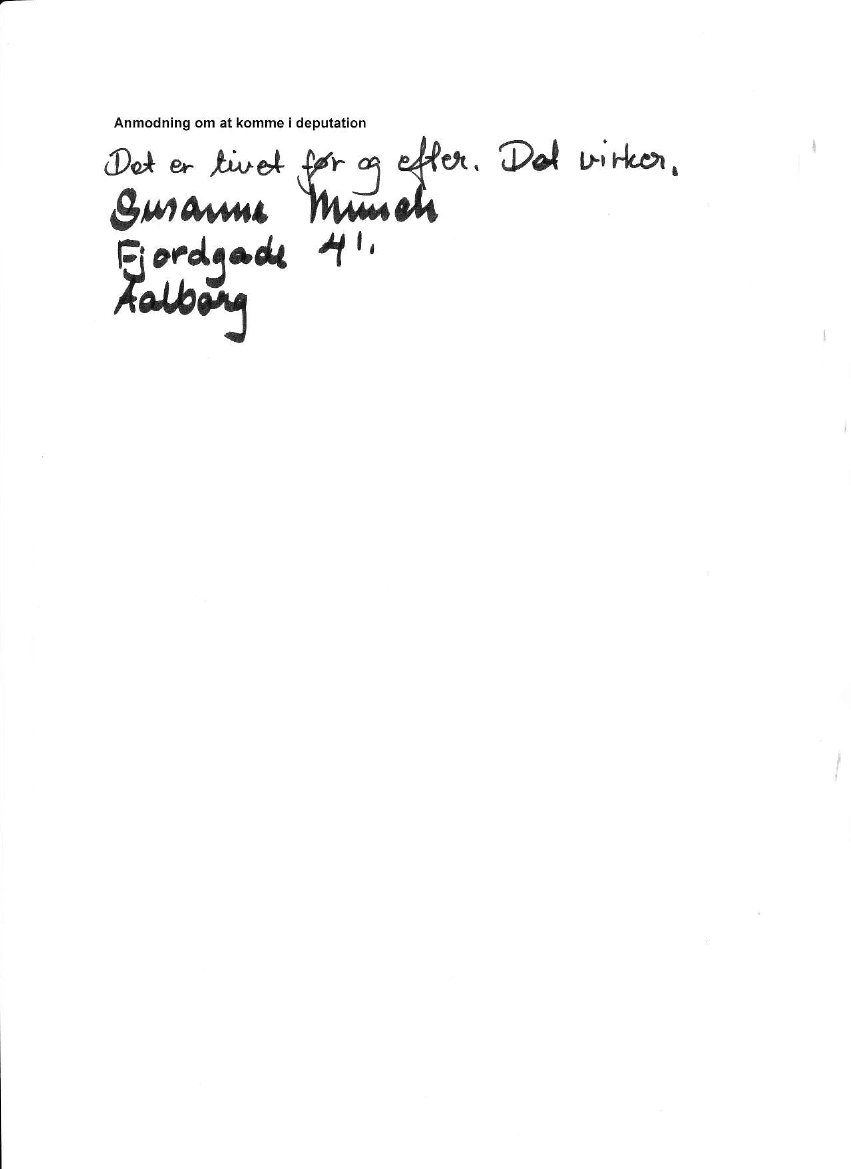 Anmodning om at komme i deputation
Det er livet før og efter. Det virker.
Susanne Munch
Fjordgade 4 1.
Aalborg